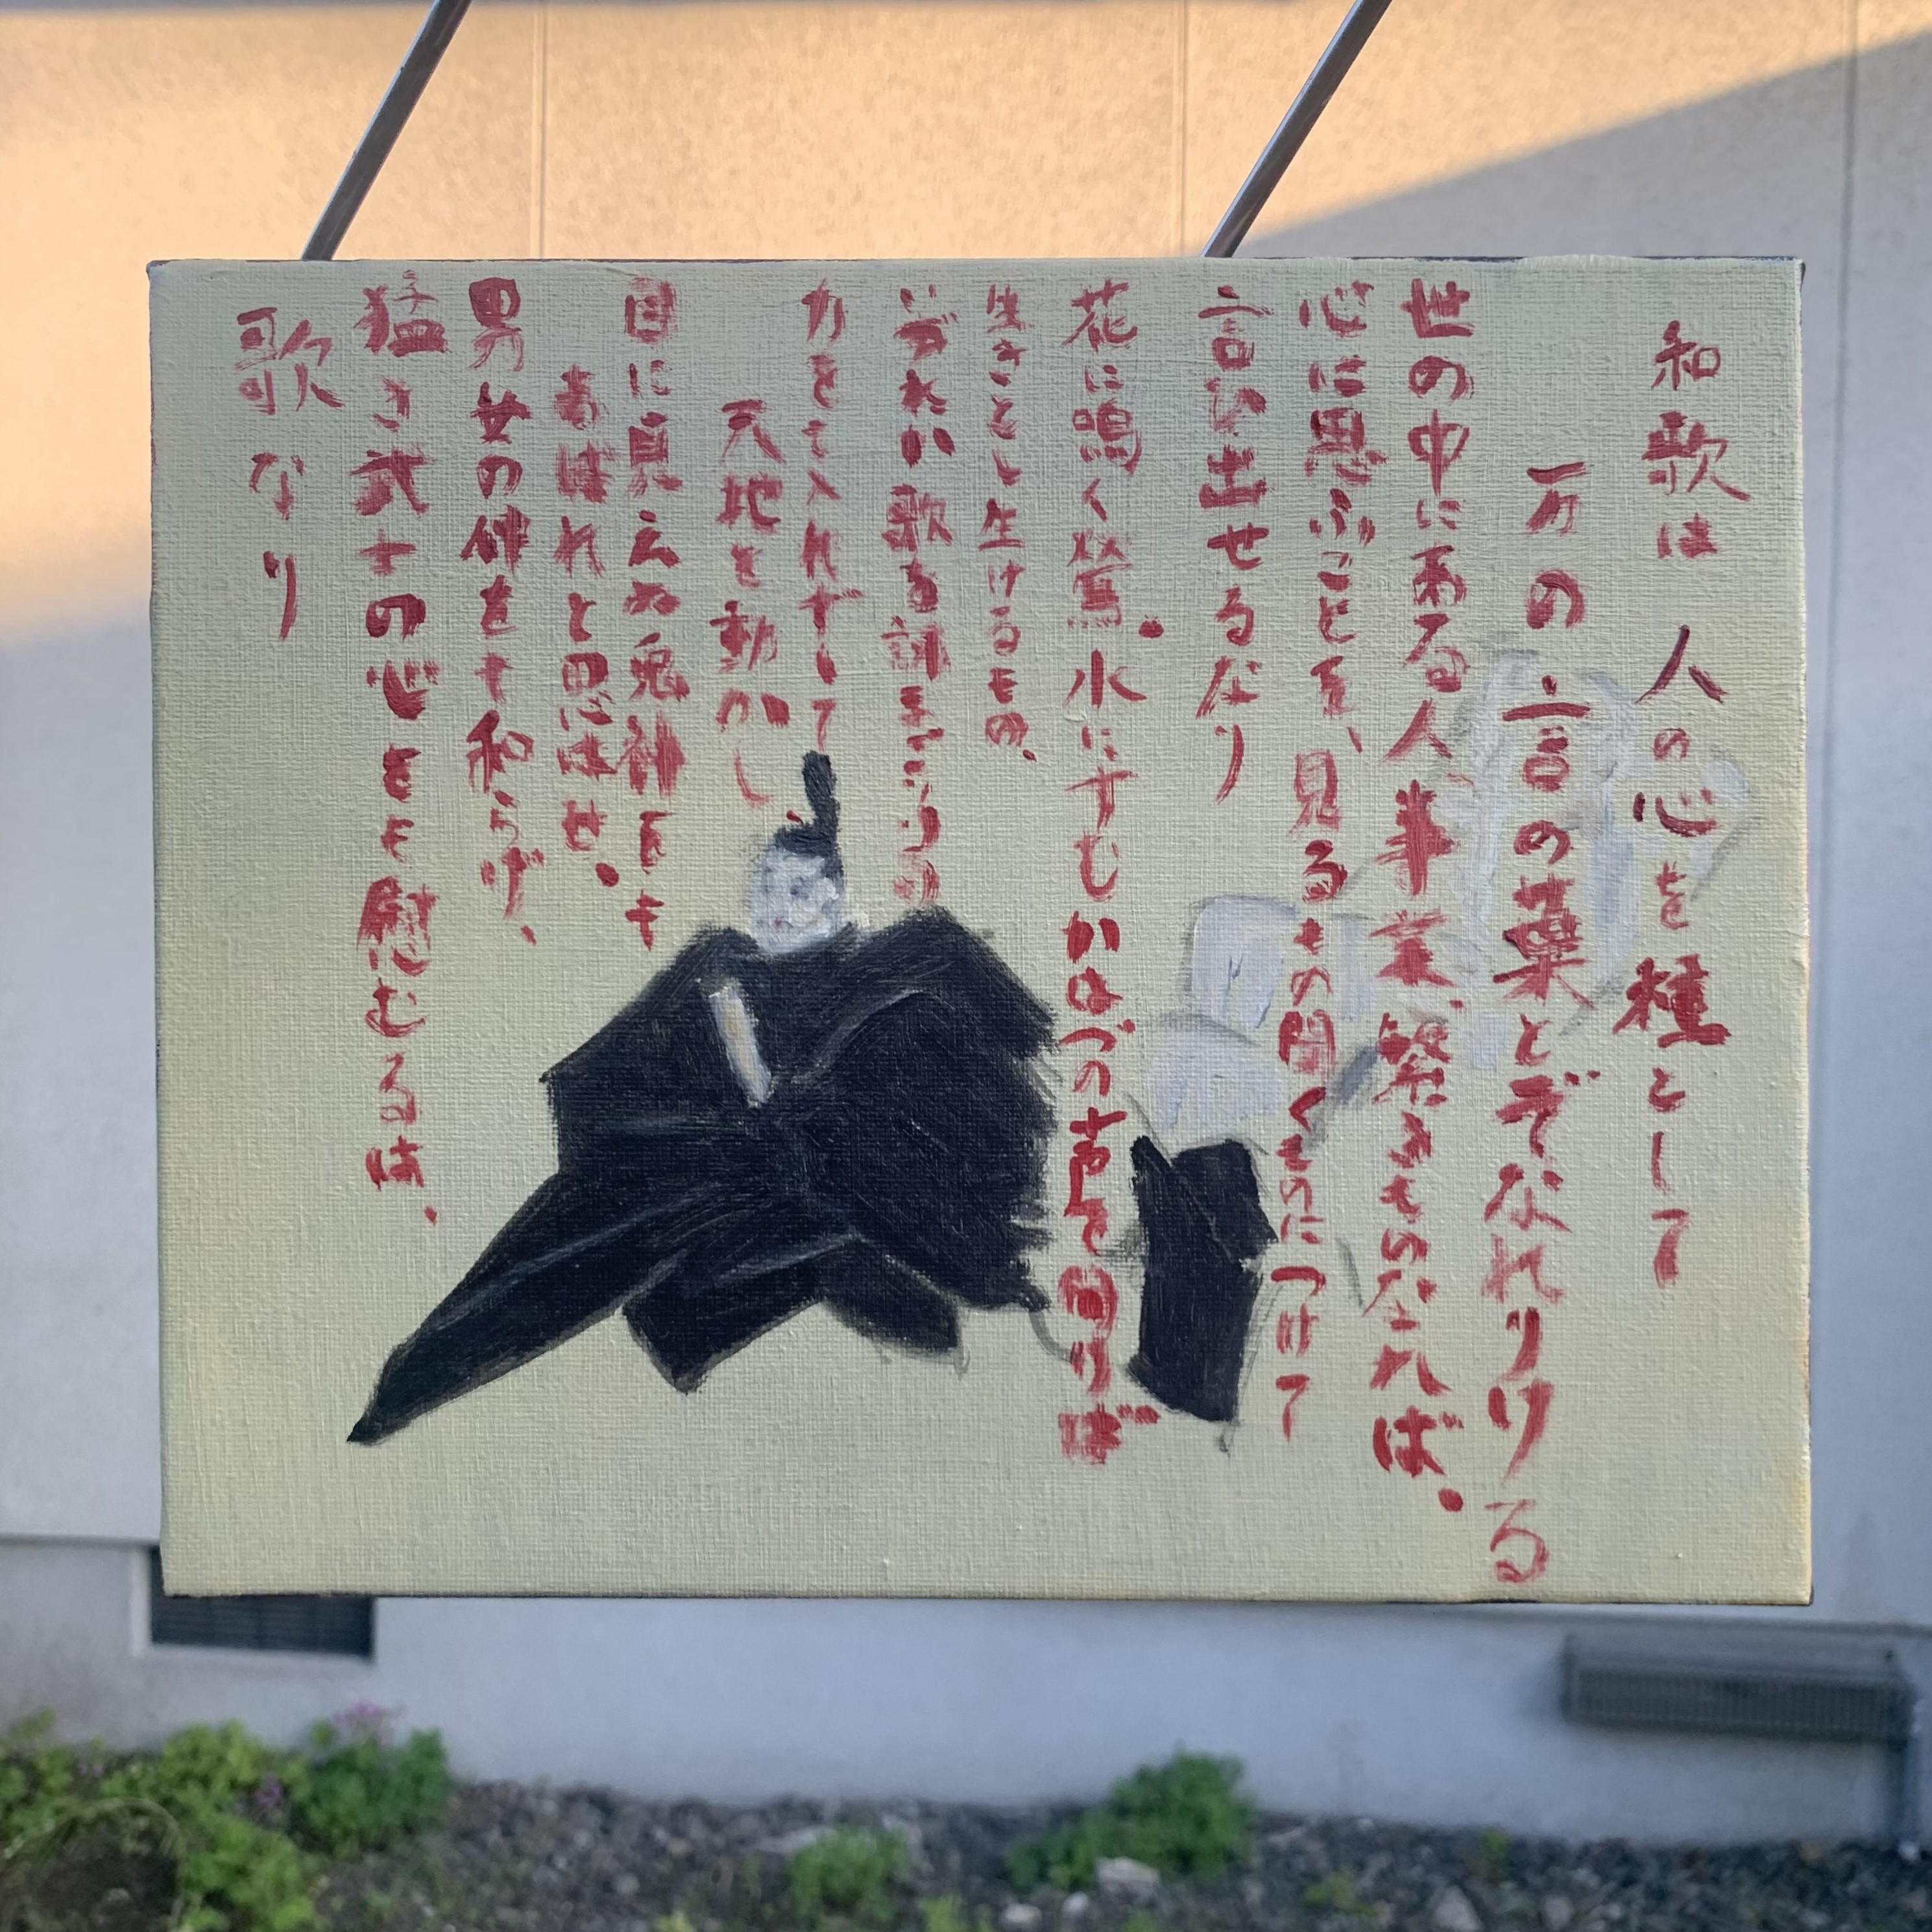 和歌は 人の心を種として
万の言の葉とぞなれりける
世の中に有る人、事業、繁きものなれば、
心に思ふことを、見るもの聞くものにつけて
言ひ出せるなり
花に鳴く鶯、水にすむかはづの声を聞けば
生きとし生けるもの、
いづれか歌を詠まざりける
力をも入れずして
天地を動かし
目に見えぬ鬼神をも
あはれと思はせ、
男女の仲をも和らげ、
猛き武士の心をも慰むるは、
歌なり